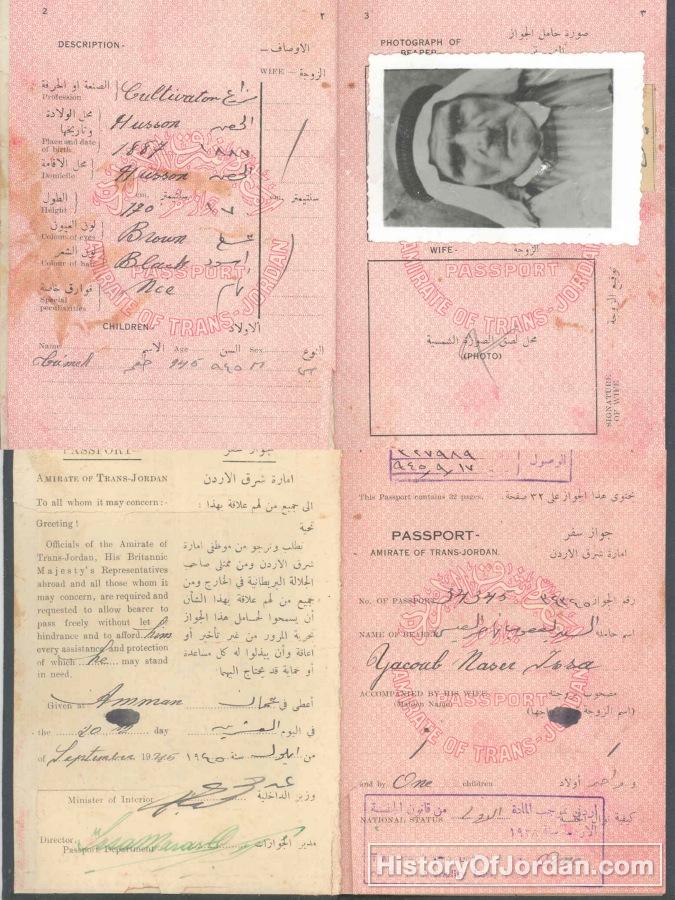 2
٢
DESCRIPTION-
الاوصاف —
WIFE — الزوجة
Profession
الصنعة او الحرفة
Cultivator
Place and date of birth
محل الولادة وتاريخها
Husson
الحصن
1887
١٨٨٧
Domicile
محل الاقامة
Husson
الحصن
Height
الطول
cm.
سنتيمتر
cm.
سنتيمتر
170
Colour of eyes
لون العيون
Brown
Colour of hair
لون الشعر
Black
اسود
Special peculiarities
فوارق خاصة
PASSPORT
AMIRATE OF TRANS-JORDAN
CHILDREN-
الاولاد
Name الاسم Age السن Sex النوع
945 ٩٤٥ M
3
٣
PHOTOGRAPH OF BEARER
صورة حامل الجواز
WIFE -
الزوجة
PASSPORT
AMIRATE OF TRANS-JORDAN
محل لصق الصورة الشمسية
(PHOTO)
توقيع الزوجة
SIGNATURE OF WIFE
PASSPORT-
جواز سفر
AMIRATE OF TRANS-JORDAN
امارة شرق الاردن
To all whom it may concern:-
الى جميع من لهم علاقة بهذا :
Greeting !
تحية
Officials of the Amirate of
Trans-Jordan, His Britannic
Majesty's Representatives
abroad and all those whom it
may concern, are required and
requested to allow bearer to
pass freely without let or
hindrance and to afford him
every assistance and protection
of which he may stand
in need.
نطلب ونرجو من موظفي امارة
شرق الاردن ومن ممثلي صاحب
الجلالة البريطانية في الخارج ومن
جميع من لهم علاقة بهذا الشأن
أن يسمحوا لحامل هذا الجواز
بحرية المرور من غير تأخير أو
اعاقة وأن يبذلوا له كل مساعدة
أو حماية قد يحتاج اليهما
Given at Amman
أعطي في عمان
the 20 day
في اليوم العشرين
of September 1945
من ايلول سنة ١٩٤٥
Minister of Interior
وزير الداخلية
Director
Passport Department
مدير الجوازات
الوصول
٢٢٧٩٨٩
٩٤٥/٩/١٧
This Passport contains 32 pages.
تحتوي هذا الجواز على ٣٢ صفحة .
PASSPORT-
جواز سفر
AMIRATE OF TRANS-JORDAN.
امارة شرق الاردن
No. OF PASSPORT 34345
٣٤٣٤٥ رقم الجواز
NAME OF BEARER
اسم حامله
Yacoub Naser Issa
ACCOMPANIED BY HIS WIFE
مصحوب بزوجته
(Maiden Name)
PASSPORT
AMIRATE OF TRANS-JORDAN
and by One children
أولاد
NATIONAL STATUS
أردني بموجب المادة الاولى من قانون الجنسية
سنة ١٩٢٨
HistoryOfJordan.com